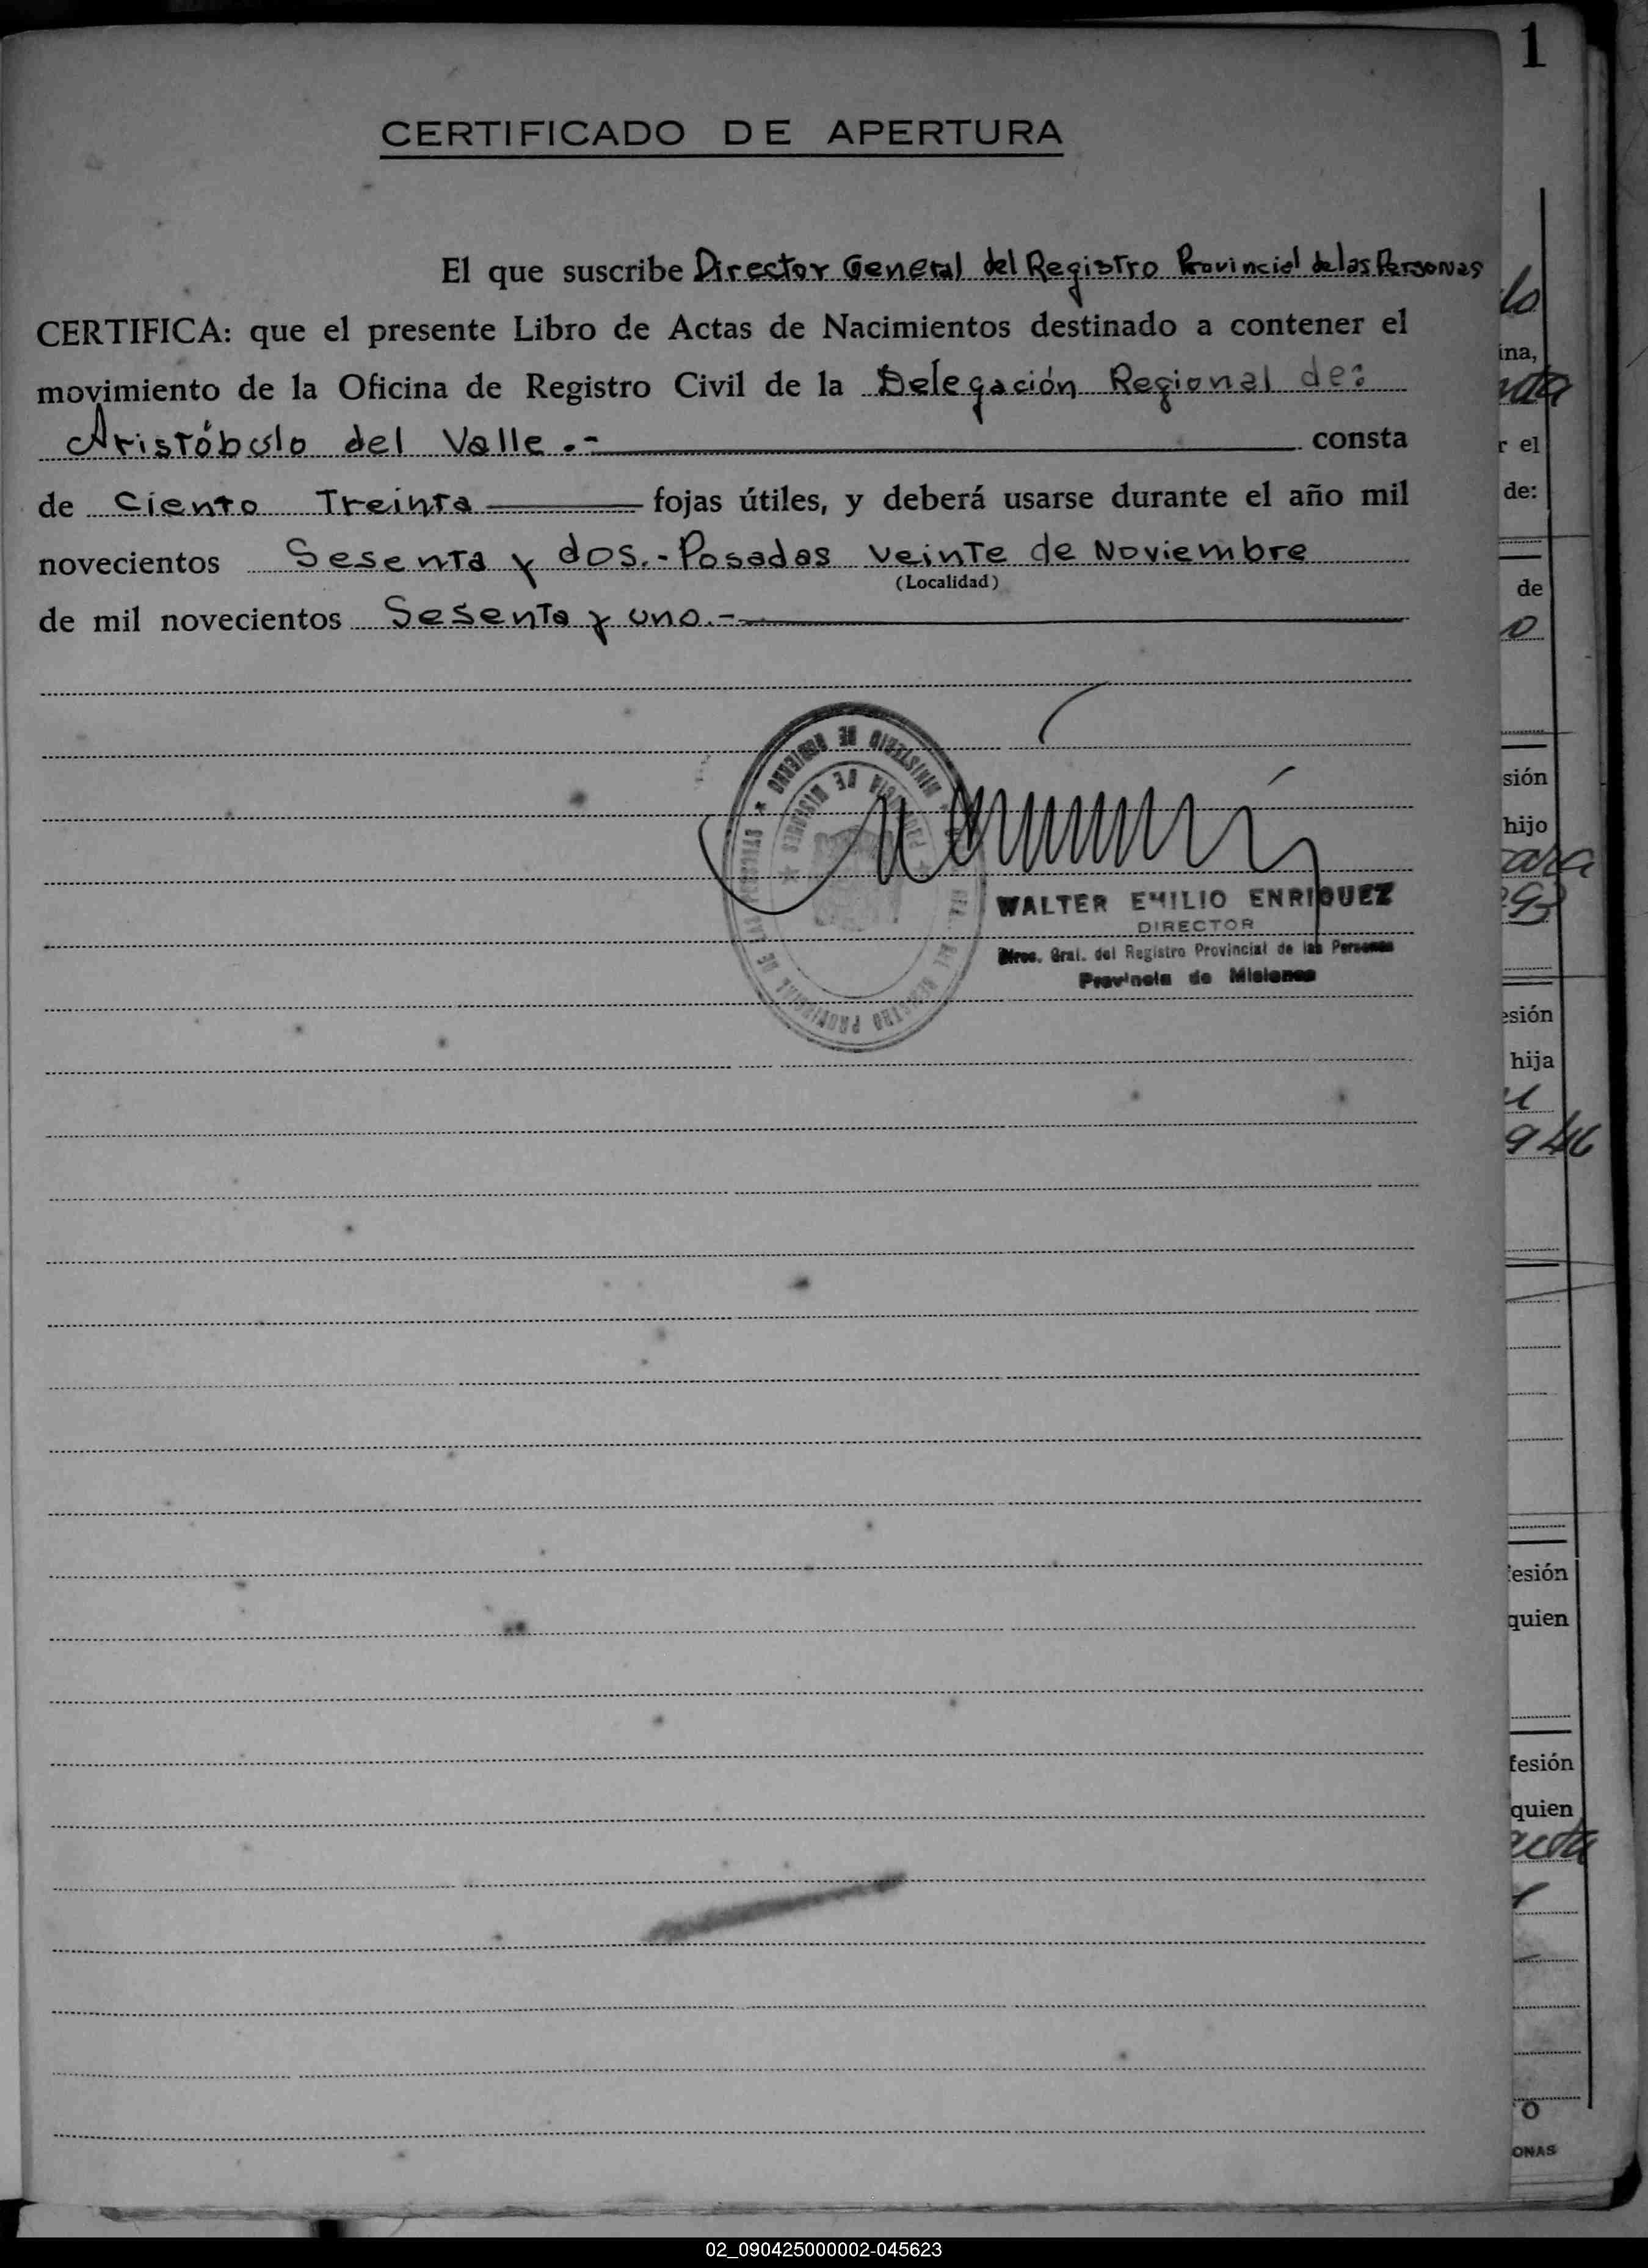 1
CERTIFICADO DE APERTURA
El que suscribe Director General del Registro Provincial de las Personas
CERTIFICA: que el presente Libro de Actas de Nacimientos destinado a contener el
movimiento de la Oficina de Registro Civil de la Delegación Regional de:
Aristóbulo del Valle.- consta
de Ciento Treinta fojas útiles, y deberá usarse durante el año mil
novecientos Sesenta y dos.- Posadas veinte de Noviembre
(Localidad)
de mil novecientos Sesenta y uno.-
MINISTERIO DE GOBIERNO
PROVINCIA DE MISIONES
REGISTRO PROVINCIAL DE LAS
WALTER EMILIO ENRIQUEZ
DIRECTOR
Direc. Gral. del Registro Provincial de las Personas
Provincia de Misiones
ina,
r el
de:
de
sión
hijo
esión
hija
946
esión
quien
fesión
quien
acta
O
ONAS
02_090425000002-045623